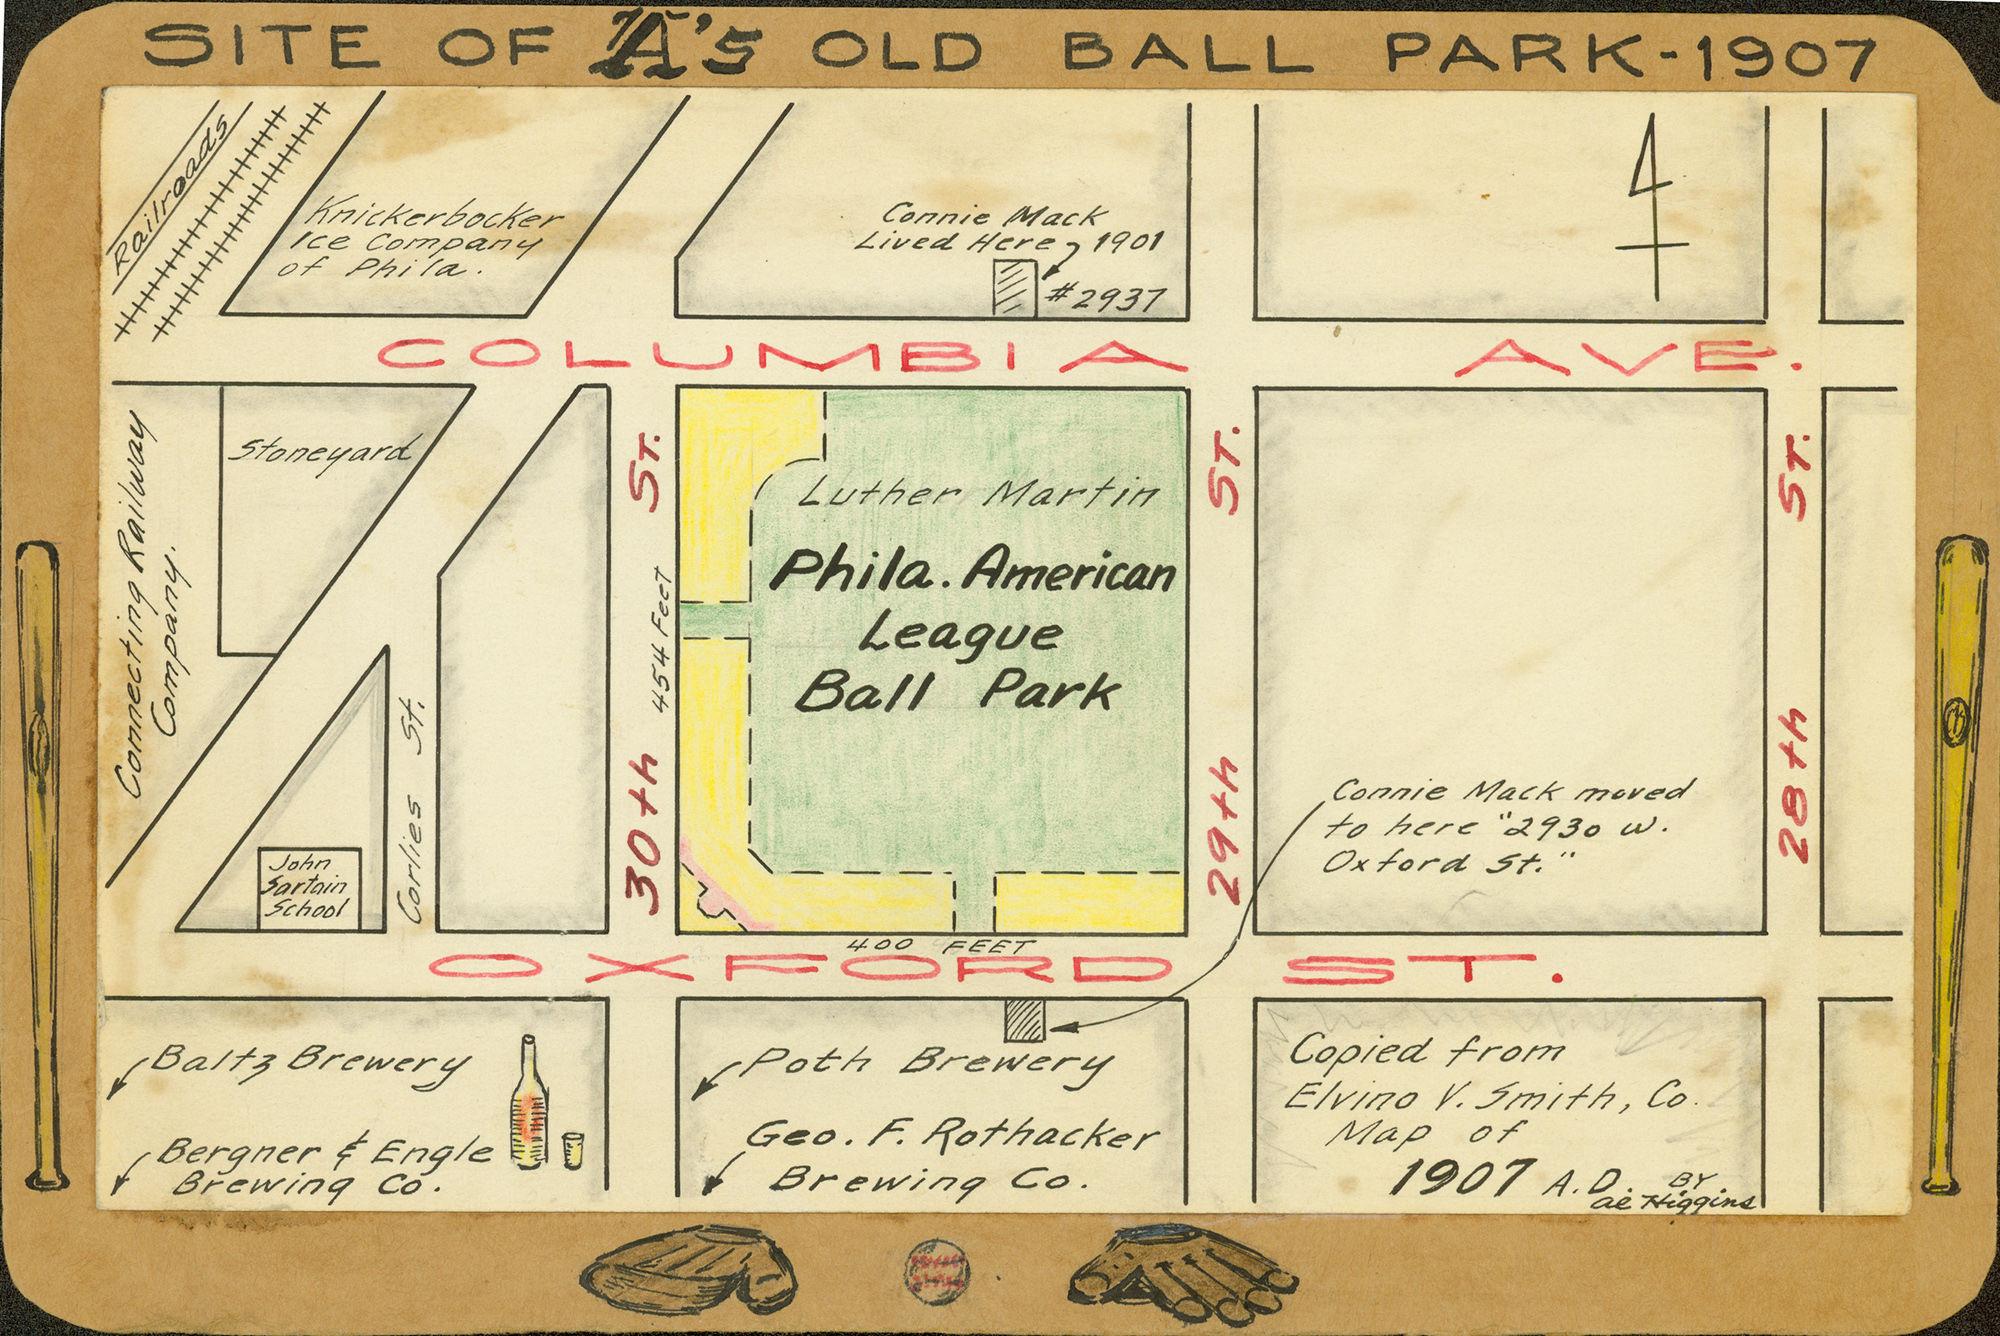 SITE OF A's OLD BALL PARK-1907
Railroads
Knickerbocker
Ice Company
of Phila.
Connie Mack
Lived Here 1901
#2937
COLUMBIA AVE.
Connecting Railway
Company.
Stoneyard
John
Sartain
School
Corlies St.
30th St.
454 Feet
Luther Martin
Phila. American
League
Ball Park
29th St.
28th St.
Connie Mack moved
to here "2930 W.
Oxford St."
400 FEET
OXFORD ST.
Baltz Brewery
Bergner & Engle
Brewing Co.
Poth Brewery
Geo. F. Rothacker
Brewing Co.
Copied from
Elvino V. Smith, Co.
Map of
1907 A.D.
BY
ae Higgins